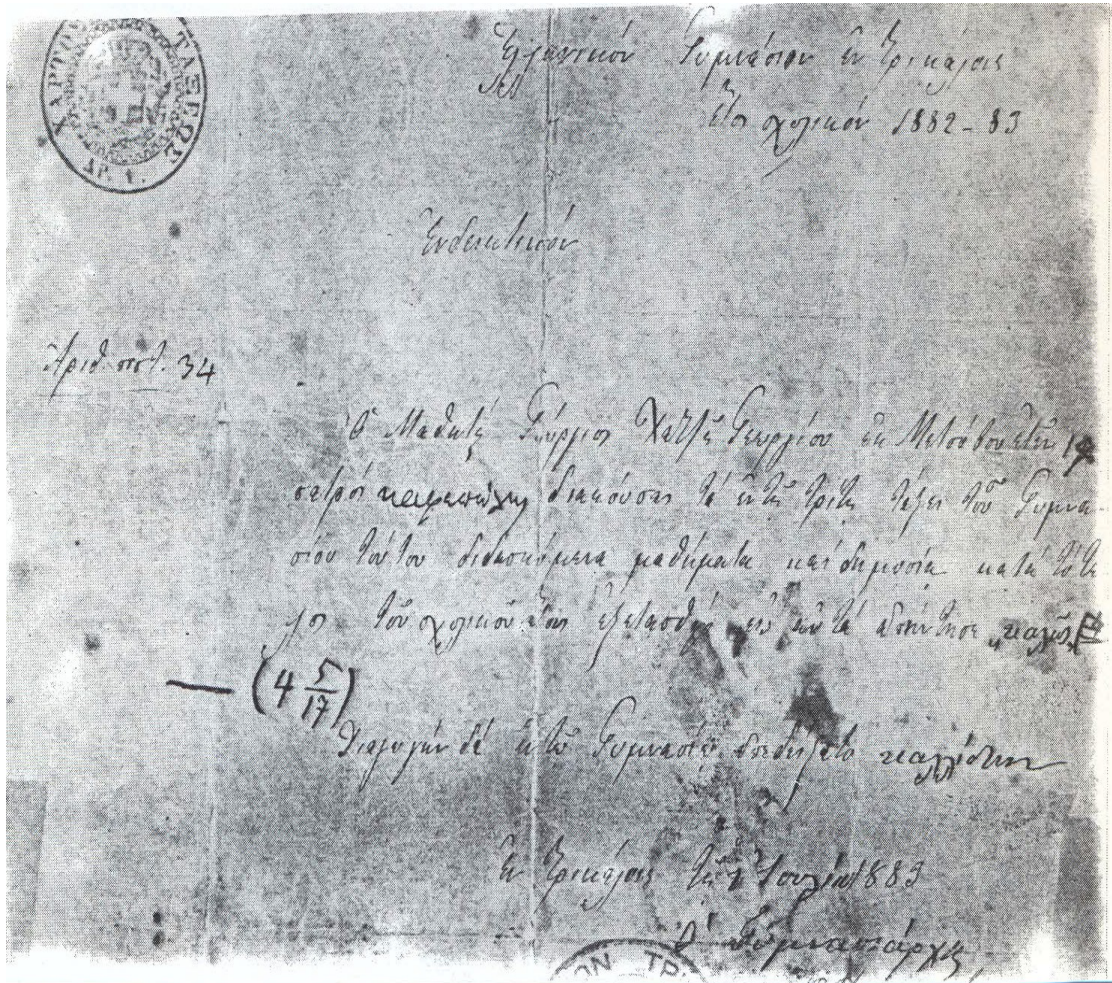 ΧΑΡΤΟ ΤΑΞΕΩΣ
ΔΡ. 1.
Ἑλληνικόν Γυμνάσιον ἐν Τρικάλοις
Ἔτος σχολικόν 1882-83
Ἐνδεικτικόν
Ἀριθ. πρωτ. 34
Ὁ Μαθητής Γεώργιος Χατζῆ Γεωργίου ἐκ Μετσόβου ἐτῶν
πατρός καφεπώλου διακούσας τά ἐν τῇ τρίτῃ τάξει τοῦ Γυμνα
σίου τούτου διδασκόμενα μαθήματα καί δημοσίᾳ κατά τό τέ
λος τοῦ σχολικοῦ ἔτους ἐξετασθείς εἰς αὐτά ἀπήντησε „καλῶς„
— (4 5/17)
Διαγωγήν δέ ἐν τῷ Γυμνασίῳ ἐπεδείξατο καλλίστην
Ἐν Τρικάλοις τῇ 1 Ἰουλίου 1883
Ὁ Γυμνασιάρχης
ΩΝ ΤΡΙ